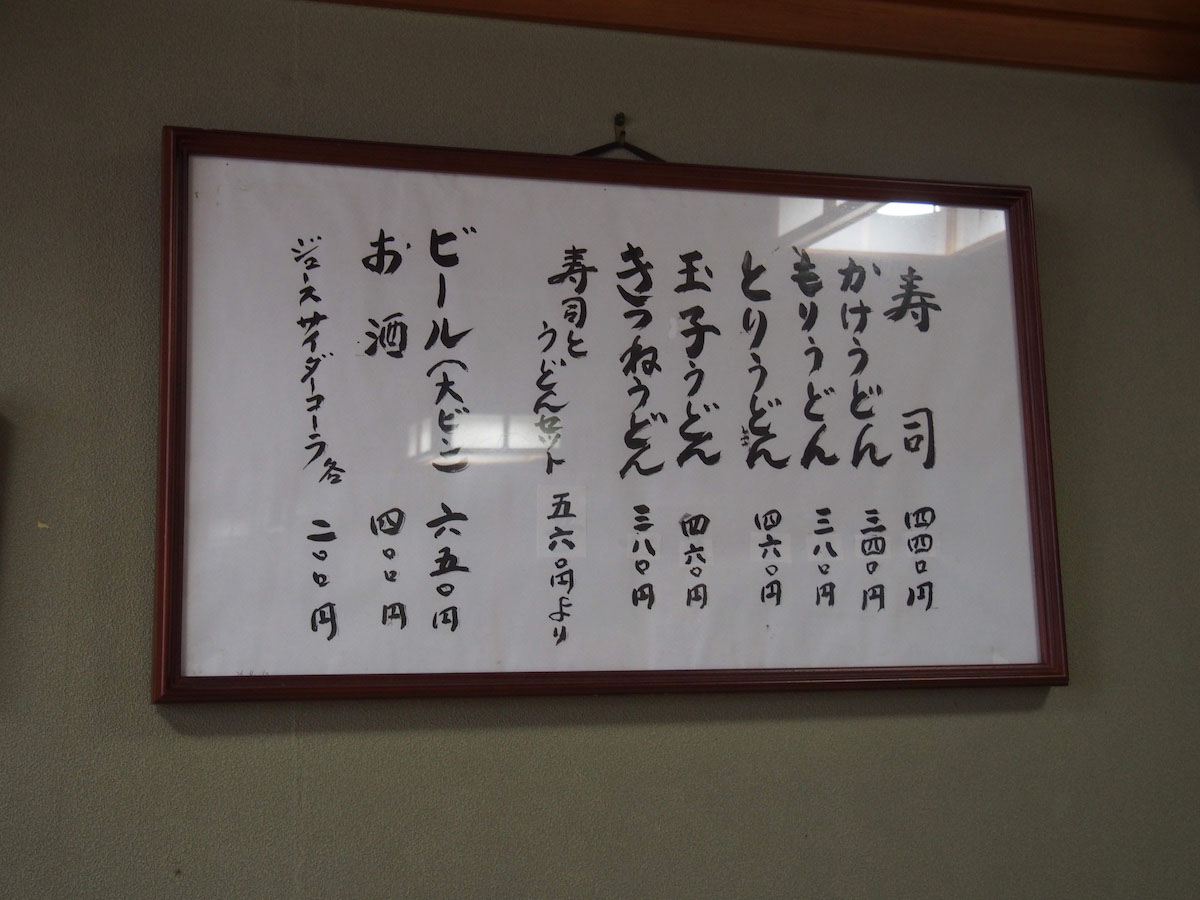 寿司 四四〇円
かけうどん 三四〇円
もりうどん 三八〇円
とりうどん 四六〇円
玉子うどん 四六〇円
きつねうどん 三八〇円
寿司とうどんセット 五六〇円より
ビール(大ビン) 六五〇円
お酒 四〇〇円
ジュースサイダーコーラ各 二〇〇円